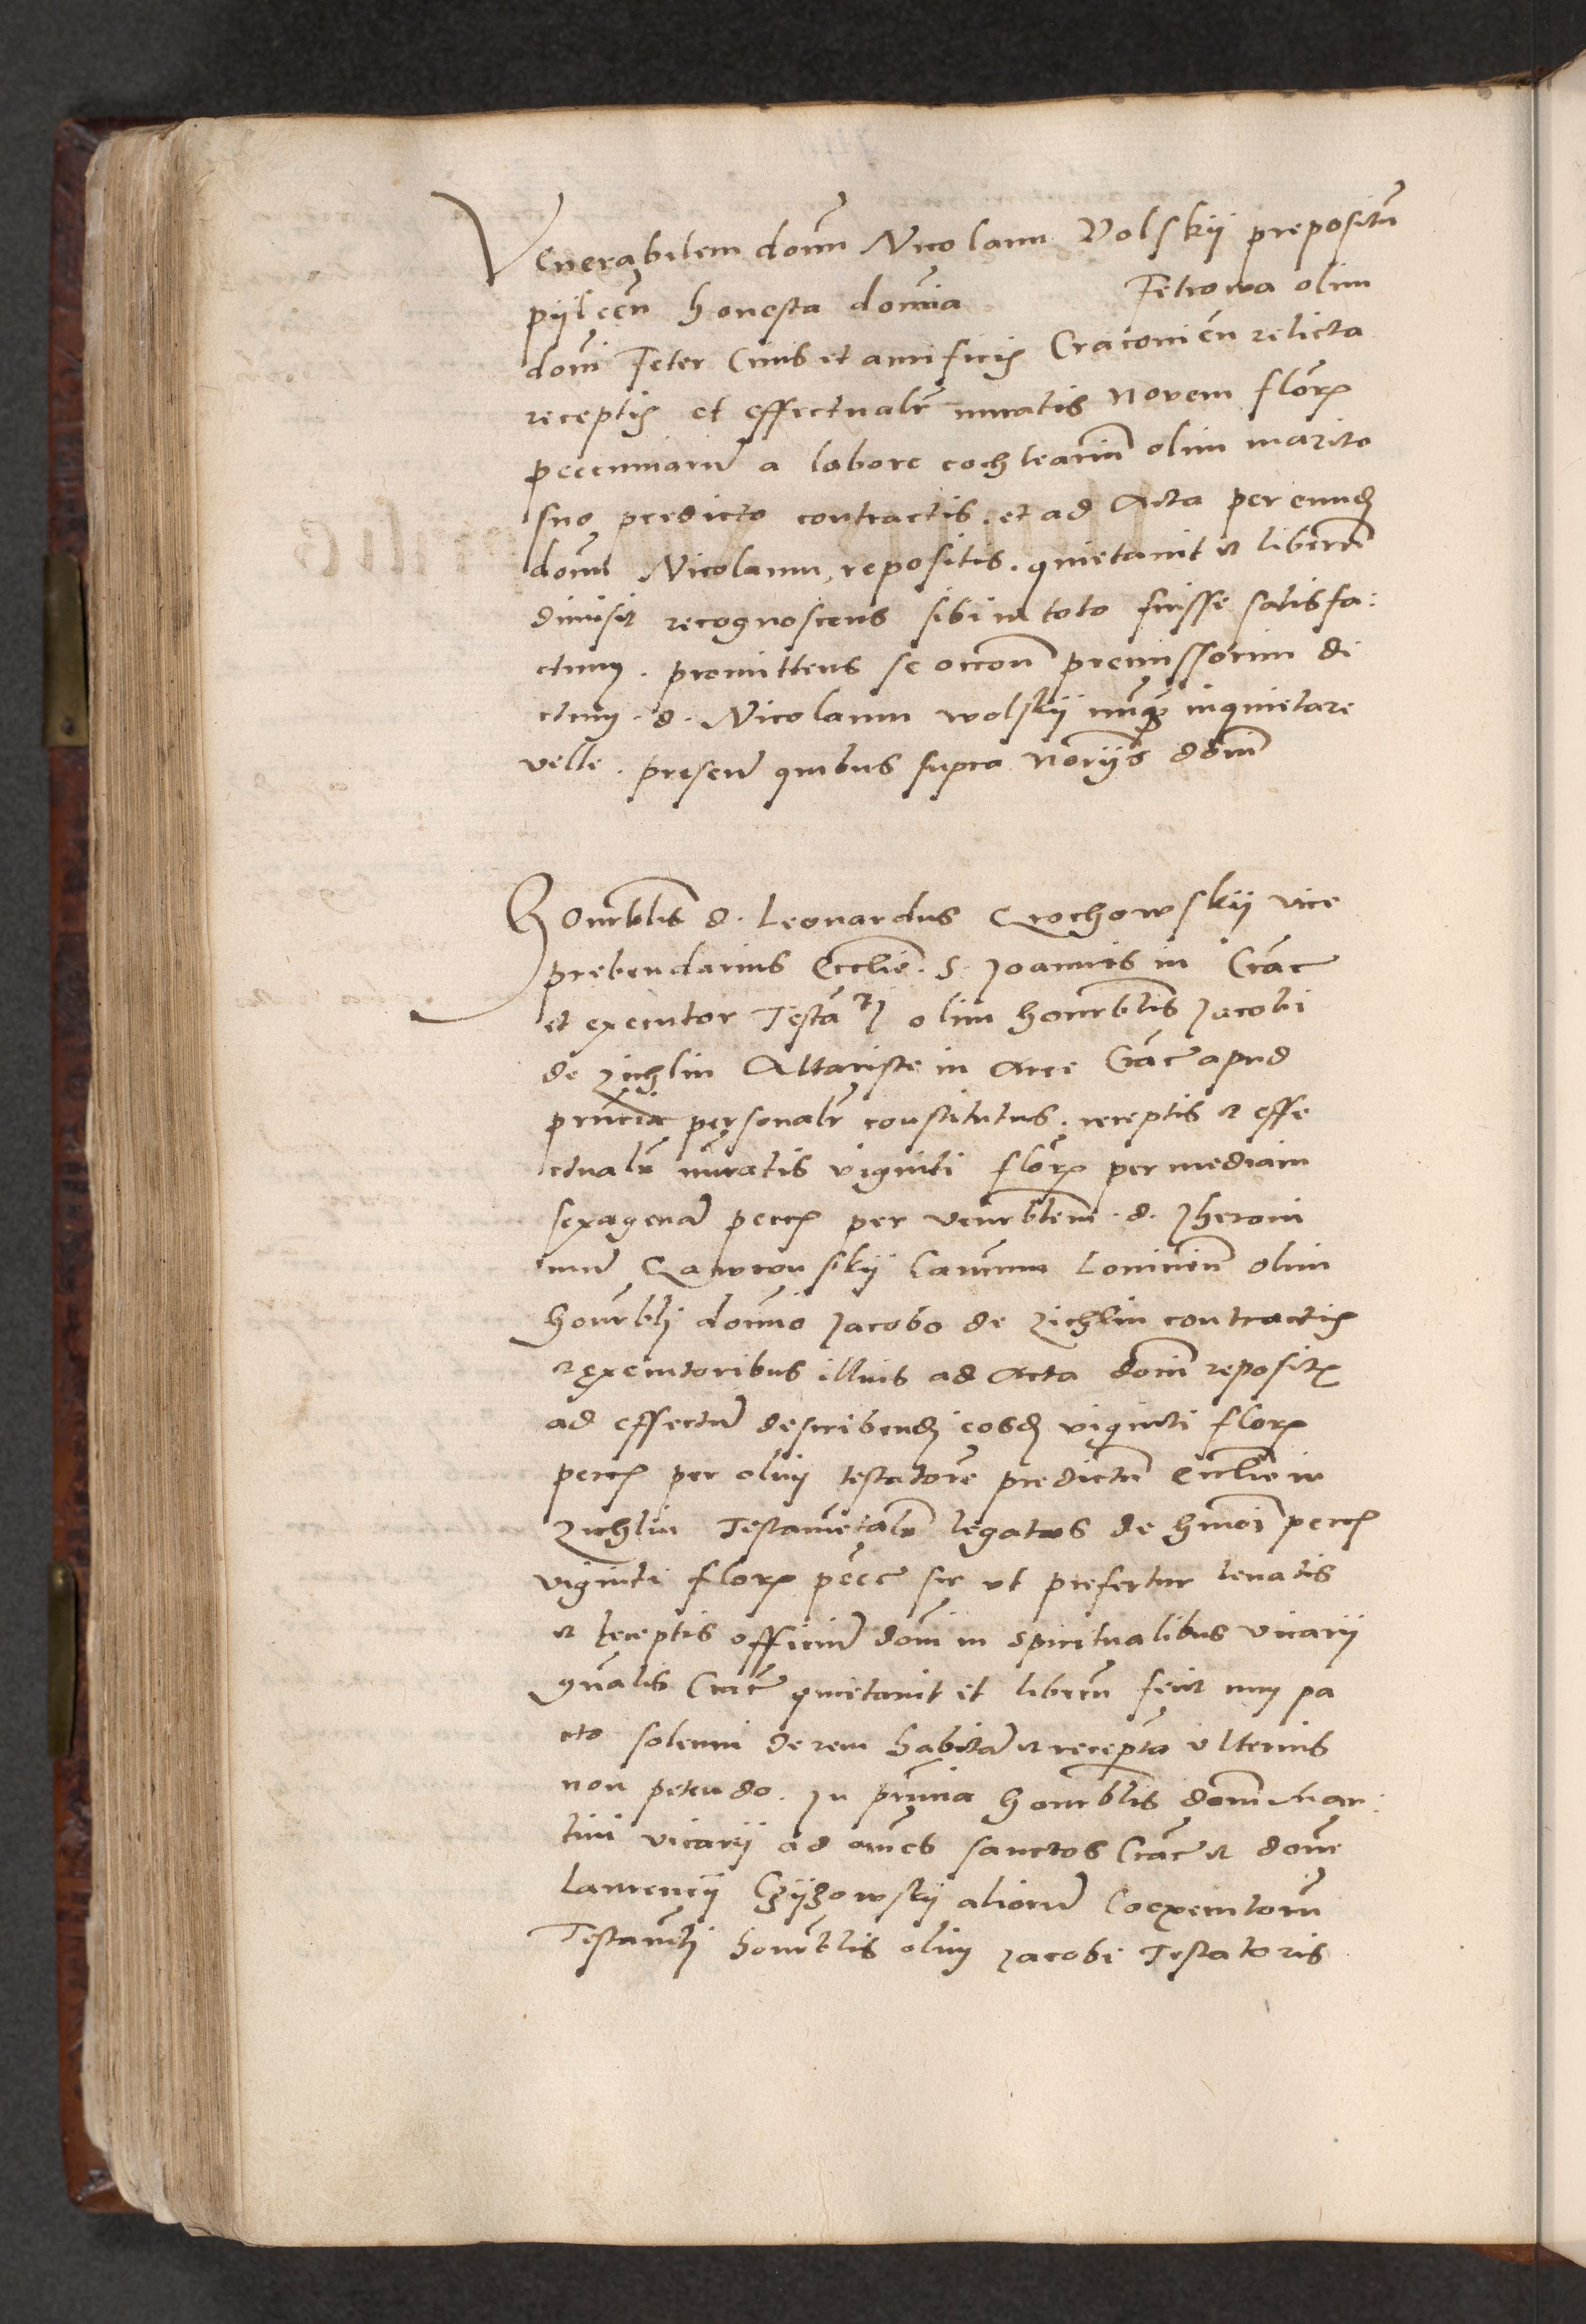 Venerabilem domn Nicolaum Volskij prepositu
pijlcen honesta domia Fetrowa olim
domi Feter Civis et aurificis Cracovien relicta
receptis et effectualr nuratis novem florx
pecuniaru a labore cochlearium olim marito
suo predicto contractis. et ad Acta per eund
domn Nicolaum, repositis. quietavit et liberum
dimisit recognoscens sibi in toto fuisse satisfa:
ctum. promittens se occone premissorum di
ctum. d. Nicolaum wolskij nunq inquietare
velle. presen quibus supra Norijs domi
Honrblis d. Leonardus Grochowskij vice
prebendarius Ecclie. S. Joannis in Crac
et executor Testati olim honrblis Jacobi
de Zichlin Altariste in Arce Crac apud
personalr constitutus. receptis et effe
ctualr nuratis viginti florx per mediam
sexagena pecc per venrblem. d. Jheroni
mu Gawronskij Canonum Lovicien olim
honrbli domno Jacobo de Zichlin contractis
et executoribus illius ad Acta domi reposit
ad effectu describendi eosd viginti florx
pecc per olim testatore predictu Ecclie in
Zichlin Testametalr legatos de hmoi pecc
viginti florx pecc sic ut prefertur levatis
et receptis officiu domi in spiritualibus vicarij
gnalis Crac quietavit et liberum fecit cum pa
cto solenni de rem habita et recepta ulterius
non petendo. In pntia honrblis domi Mar:
tini vicarij ad omes sanctos Crac et domi
Laurencij Czijzowskij alioru Coexecutorum
Testamti honrblis olim Jacobi Testatoris